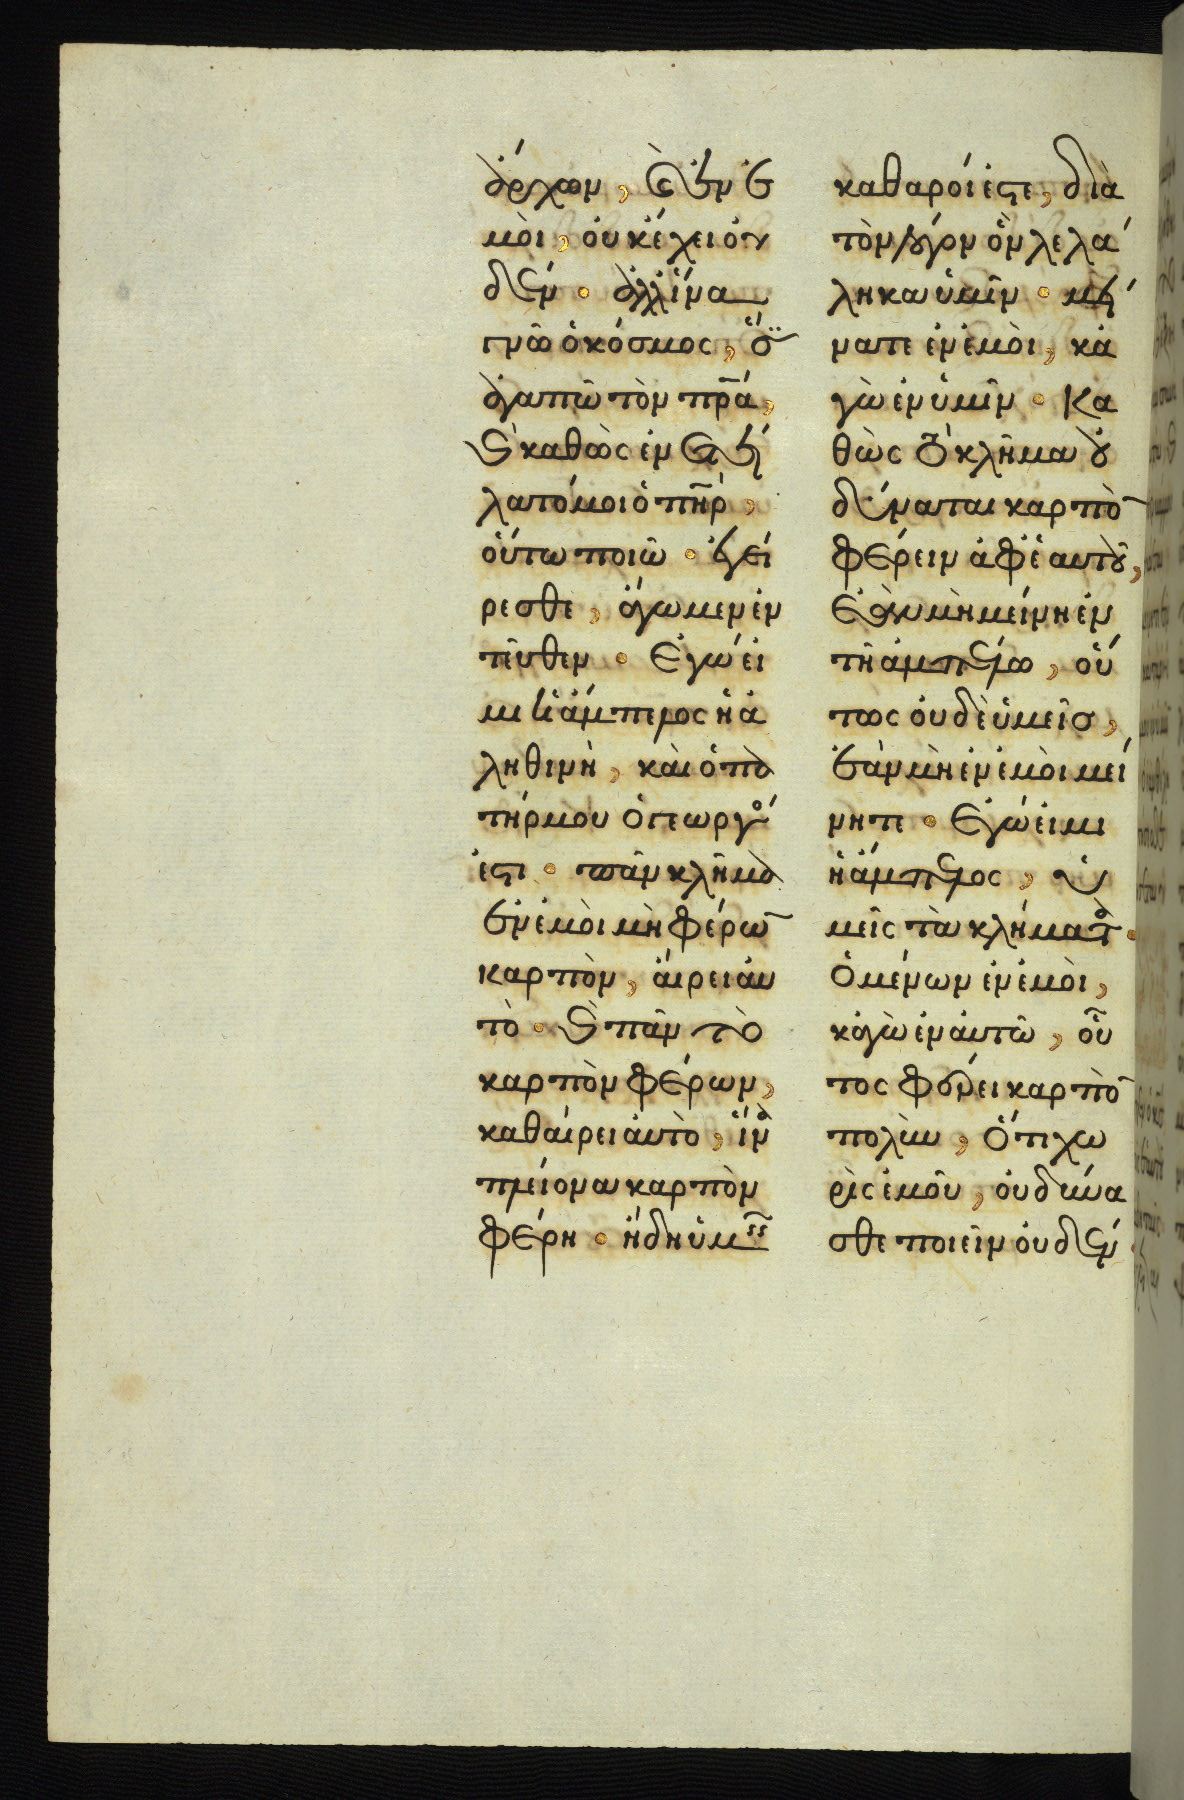 ἄρχων, καὶ ἐν ἐ
μοὶ, οὐκ ἔχει οὐ
δέν. ἀλλ' ἵνα
γνῶ ὁ κόσμος, ὅτι
ἀγαπῶ τὸν πρ̅α,
καὶ καθὼς ἐνετεί
λατό μοι ὁ πη̅ρ,
οὕτω ποιῶ. ἐγεί
ρεσθε, ἄγωμεν ἐν
τεῦθεν. Ἐγώ εἰ
μι ἡ ἄμπελος ἡ ἀ
ληθινὴ, καὶ ὁ πα
τήρ μου ὁ γεωργός
ἐστι. πᾶν κλῆμα
ἐν ἐμοὶ μὴ φέρων
καρπὸν, αἴρει αὐ
τὸ. καὶ πᾶν τὸ
καρπὸν φέρων,
καθαίρει αὐτὸ, ἵνα
πλείονα καρπὸν
φέρη. ἤδη ὑμεῖς
καθαροί ἐστε, διὰ
τὸν λόγον ὃν λελά
ληκα ὑμῖν. μεί
νατε ἐν ἐμοὶ, κἀ
γὼ ἐν ὑμῖν. Κα
θὼς τὸ κλῆμα οὐ
δύναται καρπὸν
φέρειν ἀφ' ἑαυτοῦ,
ἐὰν μὴ μείνη ἐν
τῆ ἀμπέλω, οὕ
τως οὐδὲ ὑμεῖς,
ἐὰν μὴ ἐν ἐμοὶ μεί
νητε. Ἐγώ εἰμι
ἡ ἄμπελος, ὑ
μεῖς τὰ κλήματα.
Ὁ μένων ἐν ἐμοὶ,
κἀγὼ ἐν αὐτῶ, οὗ
τος φέρει καρπὸν
πολὺν, Ὅτι χω
ρὶς ἐμοῦ, οὐ δύνα
σθε ποιεῖν οὐδέν.